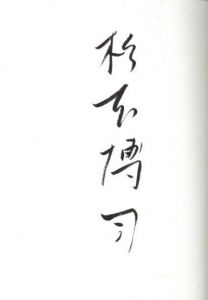 杉本博司